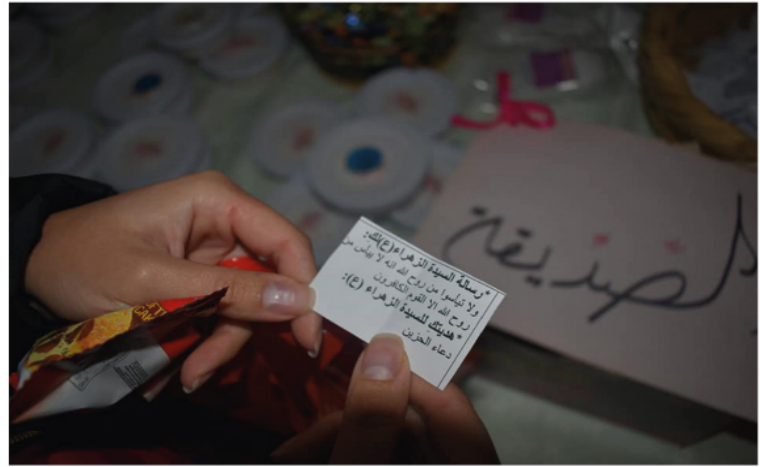 *رسالة السيدة الزهراء(ع)لك:
ولا تيأسوا من روح الله انه لا ييأس من
روح الله الا القوم الكافرون
*هديتك للسيدة الزهراء (ع):
دعاء الحزين
الصديقة